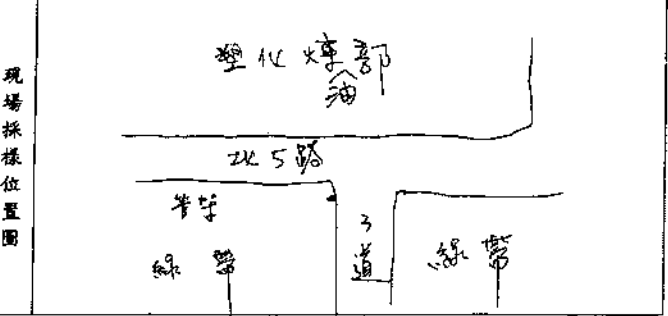 現場採樣位置圖
塑化煉油部
北5路
管架
綠帶
道
綠帶